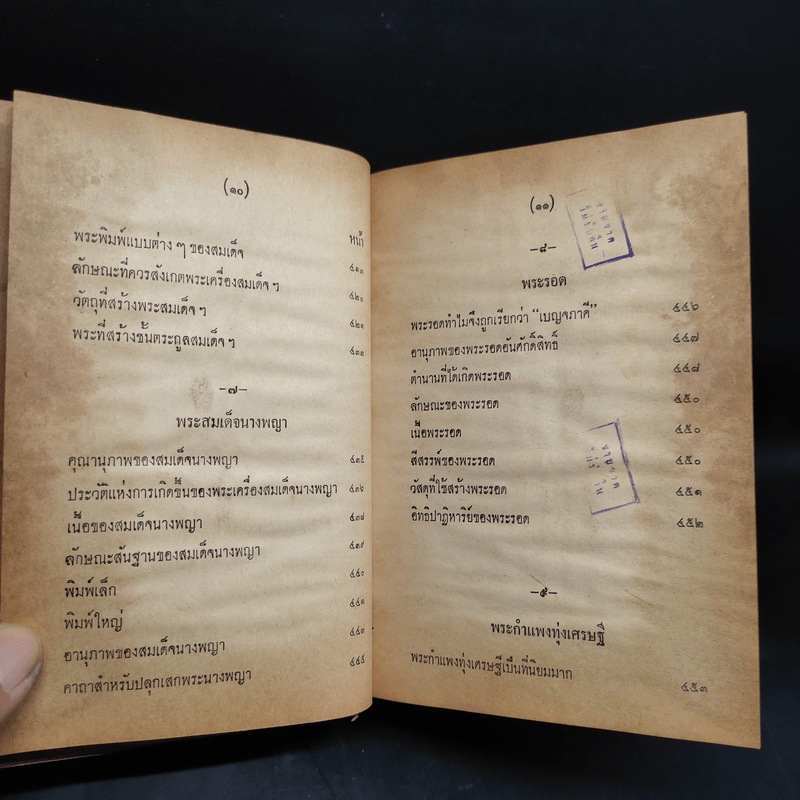 (๑๐)
หน้า
พระพิมพ์แบบต่าง ๆ ของสมเด็จ ๔๑๓
ลักษณะที่ควรสังเกตพระเครื่องสมเด็จ ๆ ๔๒๐
วัตถุที่สร้างพระสมเด็จ ๆ ๔๒๑
พระที่สร้างขั้นตระกูลสมเด็จ ๆ ๔๓๓
—๗—
พระสมเด็จนางพญา
คุณานุภาพของสมเด็จนางพญา ๔๓๕
ประวัติแห่งการเกิดขึ้นของพระเครื่องสมเด็จนางพญา ๔๓๖
เนื้อของสมเด็จนางพญา ๔๓๘
ลักษณะสันฐานของสมเด็จนางพญา ๔๓๙
พิมพ์เล็ก ๔๔๐
พิมพ์ใหญ่ ๔๔๑
อานุภาพของสมเด็จนางพญา ๔๔๓
คาถาสำหรับปลุกเสกพระนางพญา ๔๔๕
(๑๑)
—๘—
พระรอด
พระรอดทำไมจึงถูกเรียกว่า "เบญจภาคี" ๔๔๖
อานุภาพของพระรอดอันศักดิ์สิทธิ์ ๔๔๗
ตำนานที่ได้เกิดพระรอด ๔๔๘
ลักษณะของพระรอด ๔๕๐
เนื้อพระรอด ๔๕๐
สีสรรพ์ของพระรอด ๔๕๐
วัสดุที่ใช้สร้างพระรอด ๔๕๑
อิทธิปาฏิหาริย์ของพระรอด ๔๕๒
—๙—
พระกำแพงทุ่งเศรษฐี
พระกำแพงทุ่งเศรษฐีเป็นที่นิยมมาก ๔๕๓